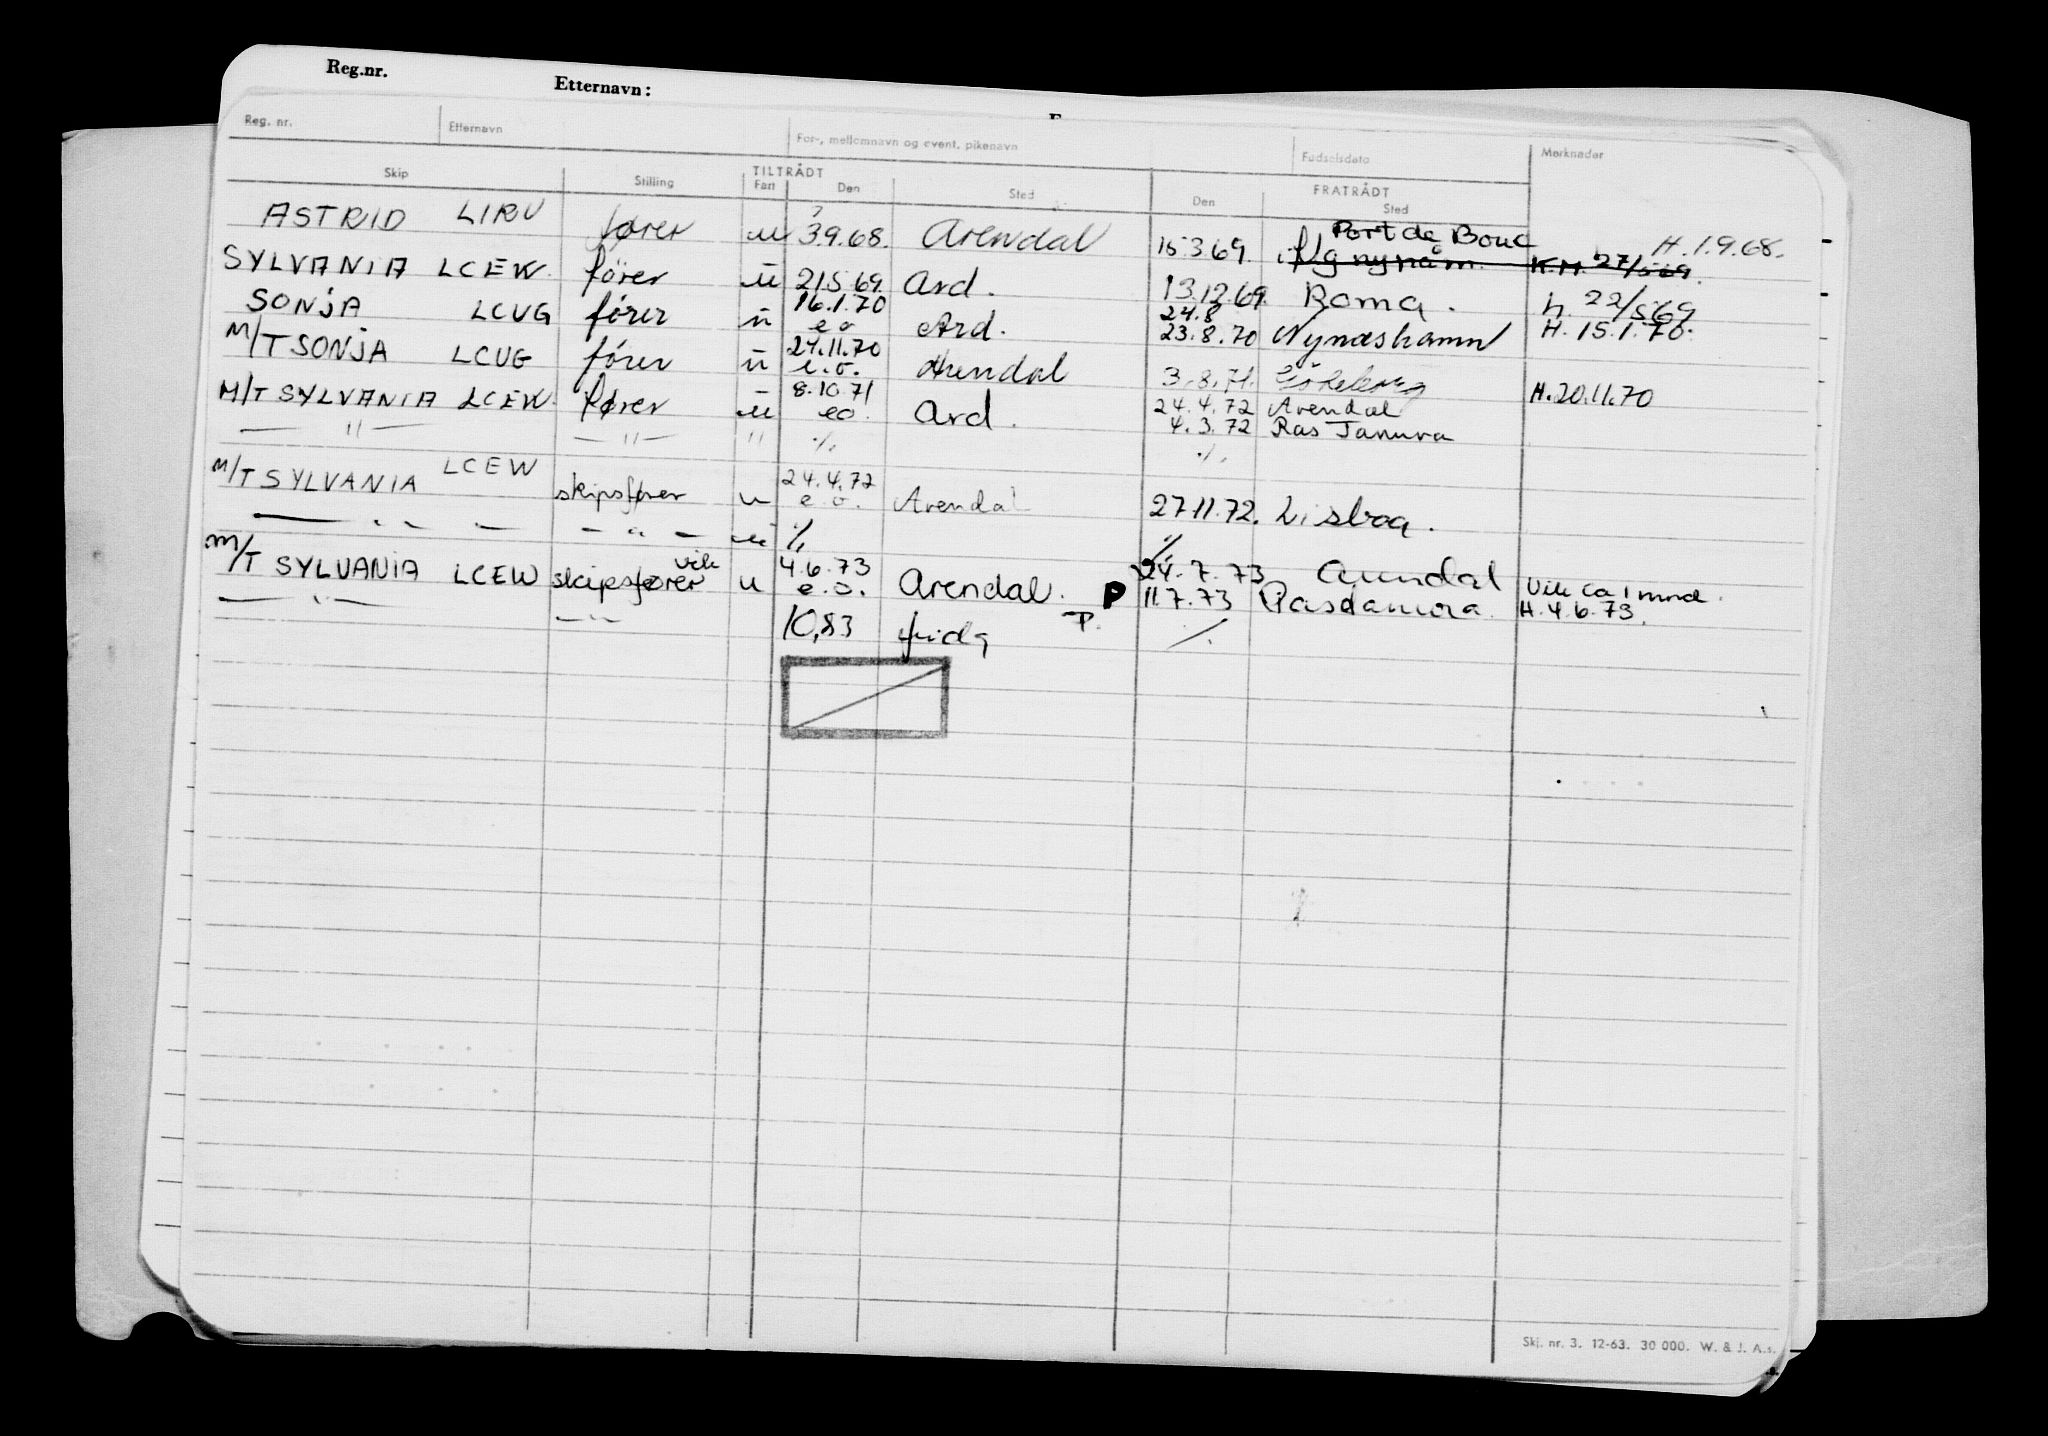 Reg.nr. Etternavn:
Reg. nr. Etternavn For-, mellomnavn og event. pikenavn Fødselsdato Merknader
Skip Stilling TILTRÅDT FRATRÅDT
Fart Den Sted Den Sted
ASTRID LIRU fører u 3.9.68. Arendal 15.3.69. Port de Bouc H.1.9.68.
SYLVANIA LCEW. fører u 21.5.69. Ard. 13.12.69. Roma. K.H. 27/5 69.
h. 22/5 69
SONJA LCUG fører u 16.1.70 e.o Ard. 24.8 23.8.70 Nynæshamn H. 15.1.70.
M/T SONJA LCUG fører u 24.11.70 e.o. Arendal 3.8.71. Göteborg H.20.11.70
M/T SYLVANIA LCEW. fører u 8.10.71 eo. Ard. 24.4.72 Arendal
— " — — " — " ./. 4.3.72 Ras Tanura
./.
M/T SYLVANIA LCEW skipsfører u 24.4.72 e.o. Arendal 27.11.72. Lisboa.
— " — — " — u ./. ./.
M/T SYLVANIA LCEW skipsfører vik u 4.6.73 e.o. Arendal. 24.7.73 Arendal Vik ca 1 mnd.
P 11.7.73 Rastanura. H. 4.6.73.
— " — — " 10,83 P. ./.
Skj. nr. 3. 12-63. 30 000. W. & J. A.s.